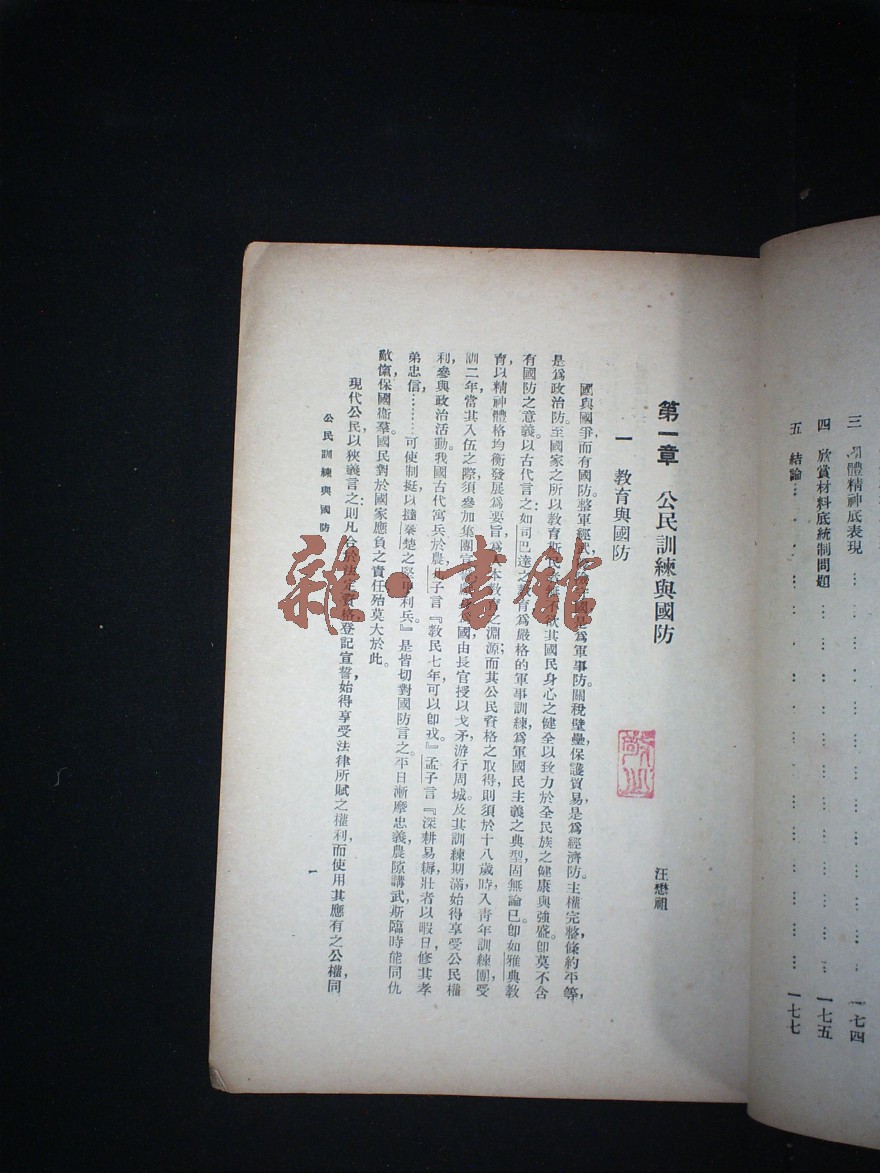 三 羣體精神底表現 … … … … … 一七四
四 欣賞材料底統制問題 … … … … … 一七五
五 結論 … … … … … 一七七
第一章 公民訓練與國防
汪懋祖
一 教育與國防
國與國爭,而有國防。整軍經武,是爲軍事防。關稅壁壘,保護貿易,是爲經濟防。主權完整,條約平等,
是爲政治防。至國家之所以教育斯民者,不欲其國民身心之健全,以致力於全民族之健康與強盛。卽莫不含
有國防之意義。以古代言之:如司巴達之教育,爲嚴格的軍事訓練,爲軍國民主義之典型,固無論已。卽如雅典教
育以精神體格均衡發展爲要旨,爲人本教育之淵源;而其公民資格之取得,則須於十八歲時入靑年訓練團,受
訓二年。當其入伍之際,須參加集團宣誓,國由長官授以戈矛,游行周城。及其訓練期滿,始得享受公民權
利,參與政治活動。我國古代寓兵於農,孔子言『教民七年,可以卽戎。』孟子言『深耕易耨,壯者以暇日,修其孝
弟忠信,………可使制挺以撻秦楚之堅甲利兵。』是皆切對國防言之。平日漸摩忠義,農隙講武,斯臨時能同仇
敵愾,保國衞羣。國民對於國家應負之責任,殆莫大於此。
現代公民,以狹義言之:則凡合於法定資格,登記宣誓,始得享受法律所賦之權利,而使用其應有之公權,同
公民訓練與國防
一
雜·書館